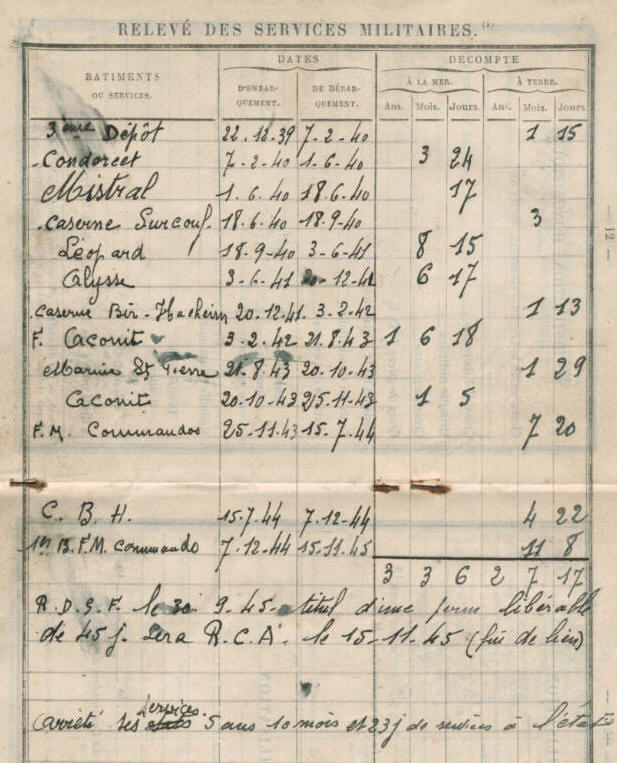 RELEVÉ DES SERVICES MILITAIRES. (2)
BATIMENTS OU SERVICES. DATES DÉCOMPTE
D'EMBARQUEMENT. DE DÉBARQUEMENT. À LA MER. À TERRE.
Ans. Mois. Jours. Ans. Mois. Jours.
3ème Dépôt 22.12.39 7-2-40 1 15
Condorcet 7-2-40 1-6-40 3 24
Mistral 1.6.40 18.6-40 17
Caserne Surcouf. 18.6-40 18.9-40 3
Léopard 18-9-40 3-6-41 8 15
Alysse 3-6.41 20-12-41 6 17
Caserne Bir-Hacheim 20.12.41. 3-2-42 1 13
F. Aconit 3.2.42 21.8.43 1 6 18
Marine St Pierre 21.8.43 20.10.43 1 29
Aconit 20.10-43 25.11-43 1 5
F.M. Commandos 25.11.43 15.7.44 7 20
C. B. H. 15.7.44 7.12-44 4 22
1er B.F.M. Commando 7.12-44 15.11.45 11 8
3 3 6 2 7 17
R.D.S.F. le 30 9-45- titul d'une perm libérable
de 45 j. sera R.C.A. le 15-11-45 (fin de lien)
services
Arrêté ses 5 ans 10 mois et 23 j de services à l'état
12